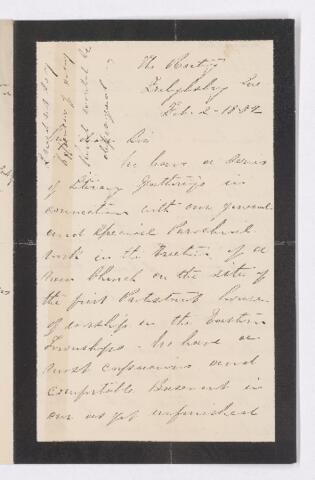 The Rectory
Frelighsburg Que
Feb. 2 - 1892
Dear Sir
We have a series
of Literary Gatherings in
connection with our general
and special Parochial
work in the Erection of a
New Church on the site of
the first Protestant house
of worship in the Eastern
Townships - We have a
most capacious and
comfortable Basement in
our as yet unfinished